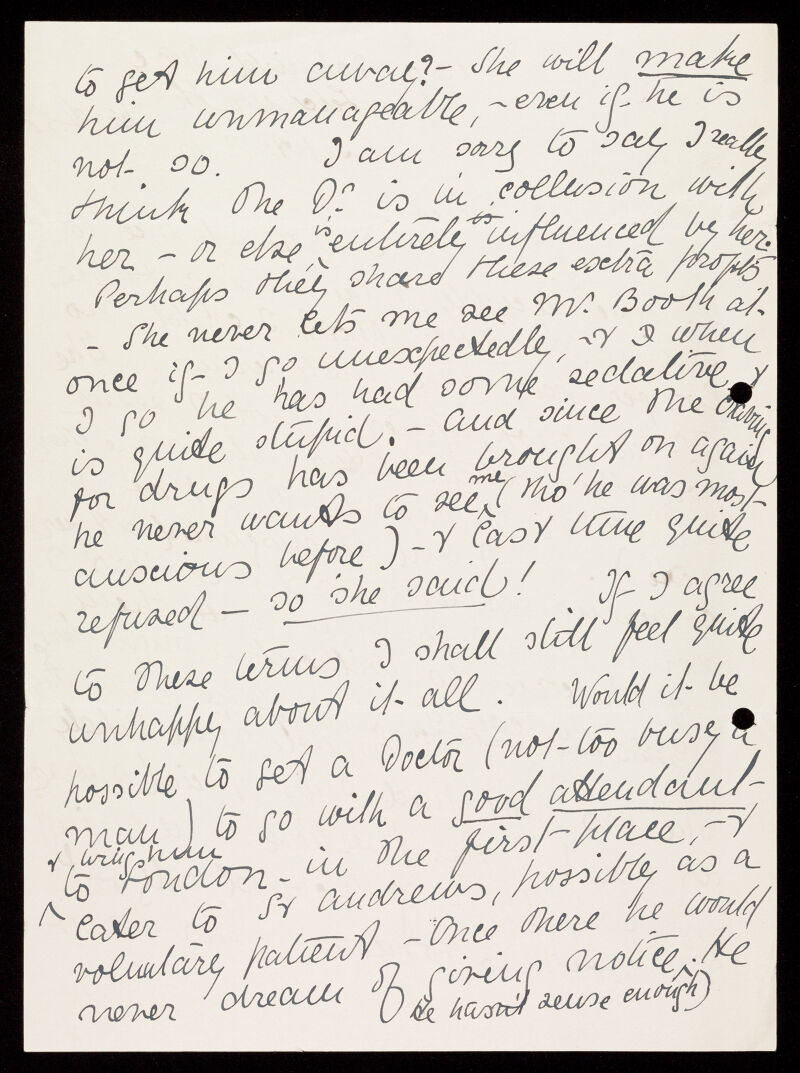 to get him away? - She will make
him unmanageable, - even if he is
not so. I am sorry to say I really
think the Dr. is in collusion with
her - or else is entirely influenced by her.
Perhaps they share these extra profits
- She never lets me see Mr. Booth at
once if I go unexpectedly, - & when
I go he has had some sedative &
is quite stupid. - and since the craving
for drugs has been brought on again
he never wants to see me (tho' he was most
anxious before) - & last time quite
refused - so she said! If I agree
to these terms I shall still feel quite
unhappy about it all. Would it be
possible to get a Doctor (not too busy a
man) to go with a good attendant
in the first place, - &
& bring him
to London - later to St Andrews, possibly as a
voluntary patient - Once there he would
never dream of giving notice. He
(he hasn't sense enough)